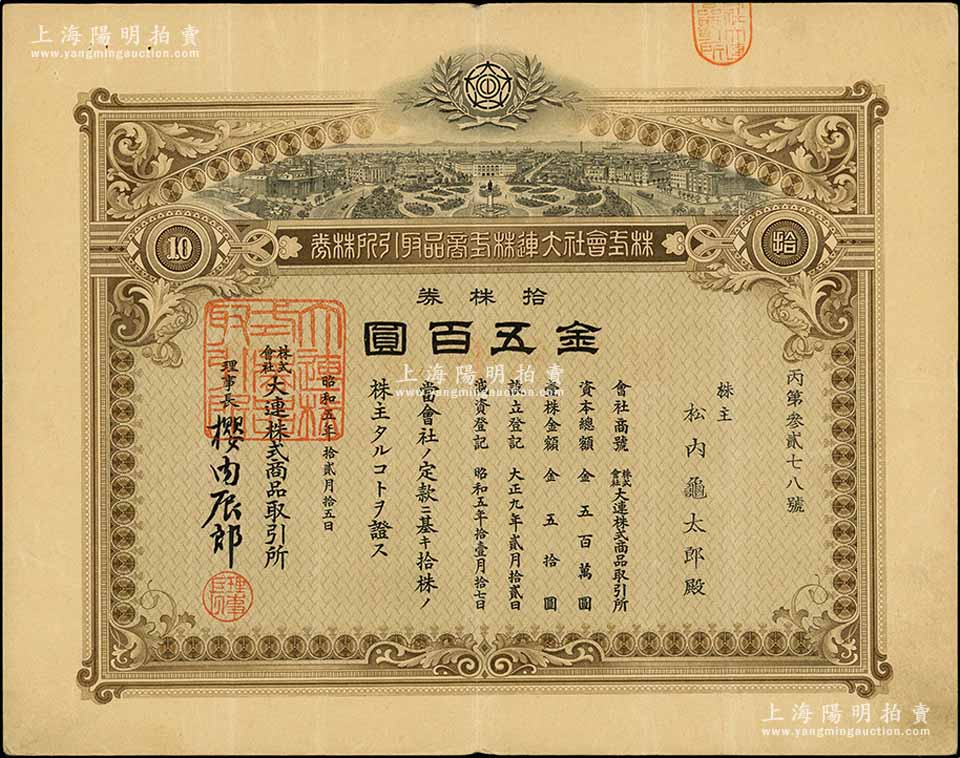 上海陽明拍賣
www.yangmingauction.com
株式會社大連株式商品取引所株券
10
拾
拾株券
金五百圓
丙第参貳七八號
株主
松內龜太郎殿
會社商號 株式會社大連株式商品取引所
資本總額 金五百萬圓
壹株金額 金五拾圓
設立登記 大正九年貳月拾貳日
減資登記 昭和五年拾壹月拾七日
當會社ノ定款ニ基キ拾株ノ
株主タルコトヲ證ス
昭和五年拾貳月拾五日
株式會社大連株式商品取引所
理事長 櫻內辰郎
上海陽明拍賣
www.yangmingauction.com
上海陽明拍賣
www.yangmingauction.com